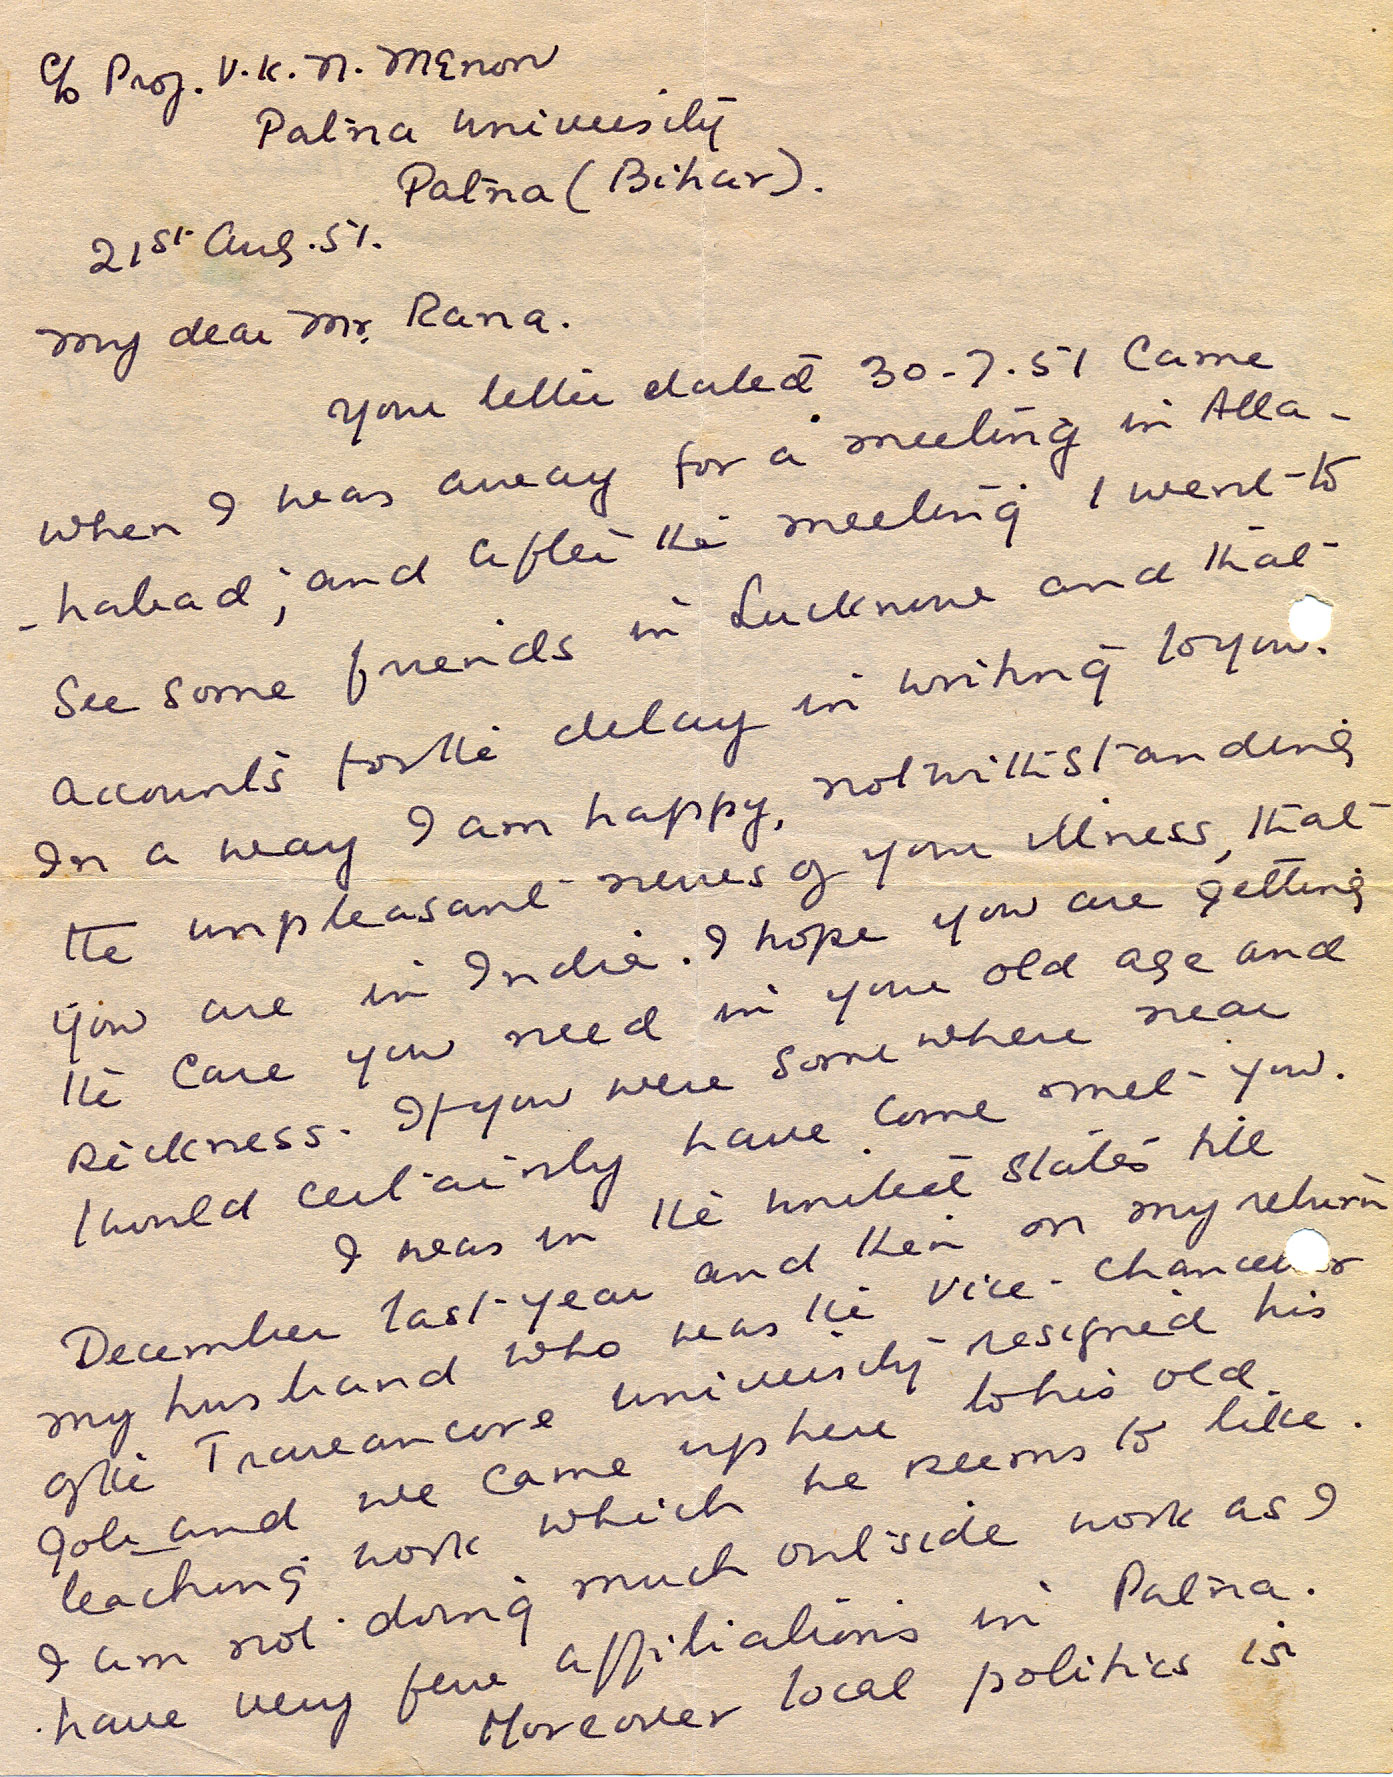 c/o Prof. V. K. N. Menon
Patna University
Patna (Bihar).
21st Aug. 51.
My dear Mr. Rana.
Your letter dated 30-7-51 came
when I was away for a meeting in Alla-
-habad; and after the meeting I went to
see some friends in Lucknow and that
accounts for the delay in writing to you.
In a way I am happy, notwithstanding
the unpleasant news of your illness, that
you are in India. I hope you are getting
the care you need in your old age and
sickness. If you were some where near
I would certainly have come met you.
I was in the United States till
December last year and then on my return
my husband who was the Vice-Chancellor
of the Travancore University resigned his
job and we came up here to his old
teaching work which he seems to like.
I am not doing much outside work as I
have very few affiliations in Patna.
Moreover local politics is